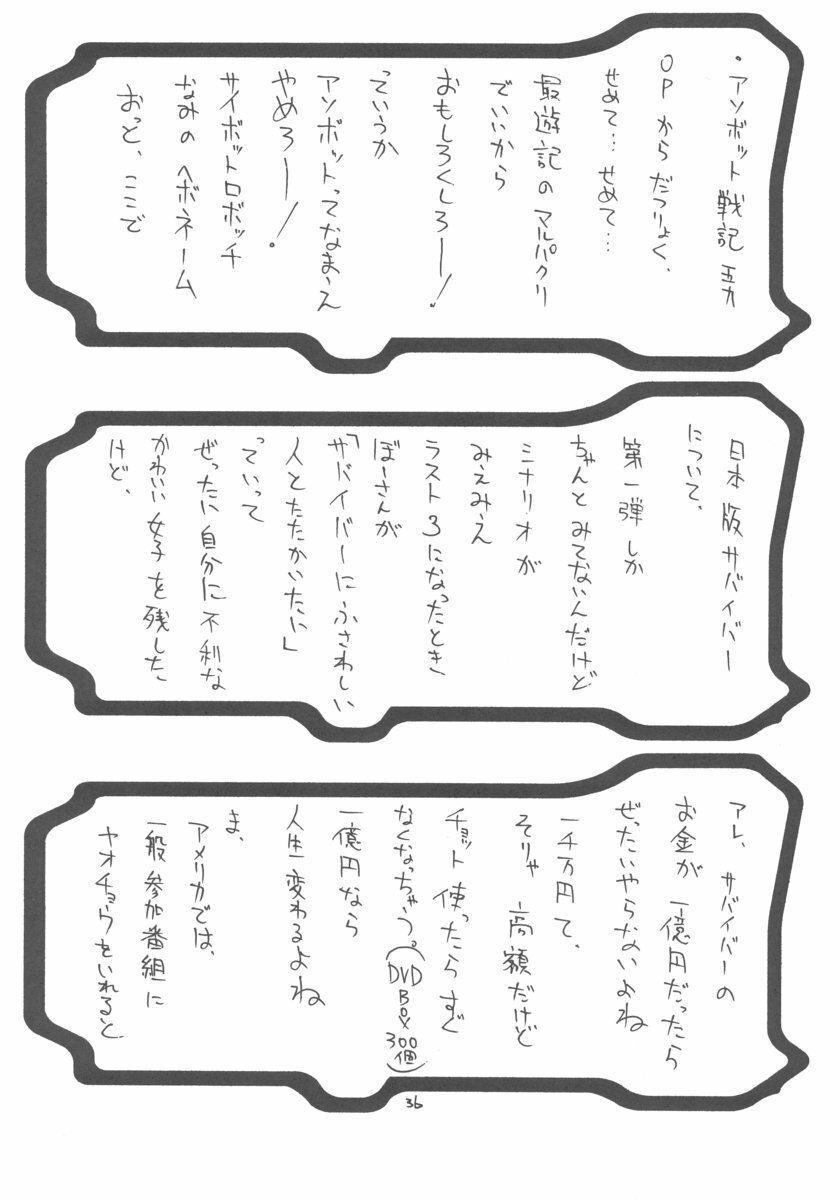 ・アソボット戦記五九
OPからだつりょく、
せめて…せめて…
最遊記のマルパクリ
でいいから
おもしろくしろー！
っていうか
アソボットってなまえ
やめろー！
サイボットロボッチ
なみのヘボネーム
おっと、ここで
日本版サバイバー
について、
第一弾しか
ちゃんとみてないんだけど
ミナリオが
みえみえ
ラスト3になったとき
ぼーさんが
「サバイバーにふさわしい
人とたたかいたい」
っていって
ぜったい自分に不利な
かわいい女子を残した
けど、
アレ、サバイバーの
お金が一億円だったら
ぜったいやらないよね
一千万円て、
そりゃ高額だけど
チョット使ったらすぐ
なくなっちゃう。(DVD BOX 300個)
一億円なら
人生変わるよね
ま、
アメリカでは、
一般参加番組に
ヤオチョウをいれると
36